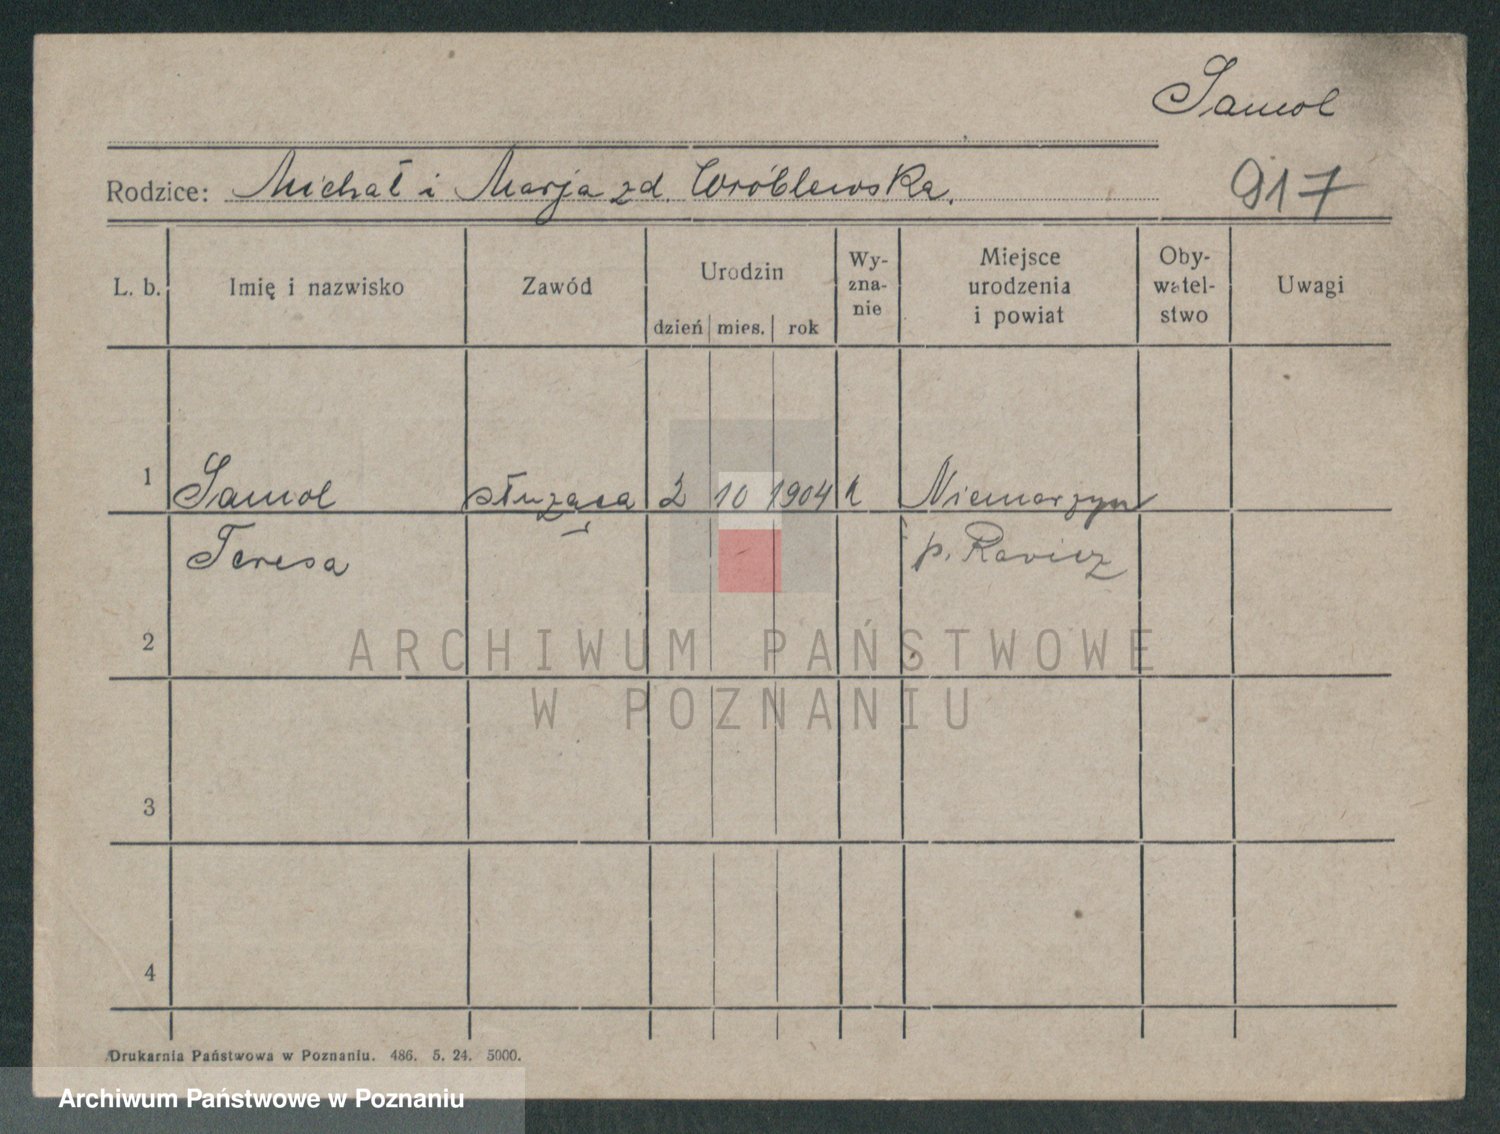 Samol
Rodzice: Michał i Marja zd. Wróblewska.
917
L. b. Imię i nazwisko Zawód Urodzin dzień mies. rok Wy-znanie Miejsce urodzenia i powiat Oby-watel-stwo Uwagi
1 Samol służąca 2 10 1904 k Niemarzyn
Teresa p. Rawicz
2
3
4
Drukarnia Państwowa w Poznaniu. 486. 5. 24. 5000.
ARCHIWUM PAŃSTWOWE
W POZNANIU
Archiwum Państwowe w Poznaniu